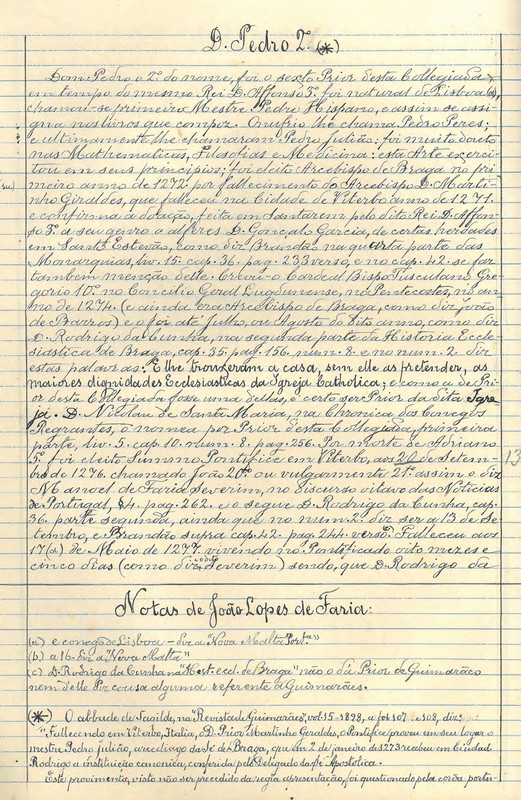 D. Pedro 2º (*)
Dom Pedro o 2º do nome, foi o sexto Prior desta Collegiada
em tempo do mesmo Rei D. Affonso 3º, foi natural de Lisboa (a),
chamou-se primeiro Mestre Pedro Hispano, e assim se assi-
gna nos livros que compoz. Onufrio lhe chama Pedro Peres;
e ultimamente lhe chamaram Pedro Julião: foi muito douto
nas Mathematicas, Filosofias e Medicina: esta Arte exerci-
tou em seus principios; foi eleito Arcebispo de Braga no pri-
meiro anno de 1272 por fallecimento do Arcebispo D. Marti-
nho Giraldes, que falleceu na Cidade de Viterbo anno de 1271.
e confirma a doação, feita em Santarem pelo dito Rei D. Affon-
so 3º a seu genro a alferes D. Gonçalo Garcia, de certas herdades
em Santo Estevão, como diz Brandão na quarta parte das
Monarquias, liv. 15. cap. 36. pag. 233 verso, e no cap. 42. se faz
tambem menção delle. Creou-o Cardeal Bispo Tusculano Gre-
gorio 10º no Concilio Geral Lugdunense, no Pentecostes, no an-
no de 1274 (e ainda era Arcebispo de Braga, como diz João
de Barros) e o foi até Julho, ou Agosto do dito anno, como diz
D. Rodrigo da Cunha, na segunda parte da Historia Eccle-
siastica de Braga, cap. 35. pag. 156. num. 8. e no num. 2. diz
estas palavras: E lhe trouxeram a casa, sem elle as pretender, as
maiores dignidades Ecclesiasticas da Igreja Catholica; e como a de Pri-
or desta Collegiada fosse uma dellas, é certo ser Prior da dita Igre-
ja. D. Nicolau de Santa Maria, na Chronica dos Conegos
Regrantes, o nomea por Prior desta Collegiada, primeira
parte, liv. 5. cap. 10. num. 8. pag. 256. Por morte de Adriano
5º foi eleito Summo Pontifice em Viterbo, aos 20 de Setem-
13
bro de 1276. chamado João 20º ou vulgarmente 21º assim o diz
Manoel de Faria Severim, no discurso oitavo das Noticias
de Portugal, §4. pag. 262. e o segue D. Rodrigo da Cunha, cap.
36. parte segunda, ainda que no num. 2. diz ser a 13 de Se-
tembro, e Brandão supra cap. 42. pag. 244. verso. Falleceu aos
17 de Maio de 1277. vivendo no Pontificado oito mezes e
cinco dias (como diz o dito Severim) sendo, que D. Rodrigo da
Notas de João Lopes de Faria:
(a) e conego de Lisboa - diz a "Nova Malta Port."
(b) a 16 - diz a "Nova Malta"
(c) D. Rodrigo da Cunha na "Hist. eccl. de Braga" não o dá Prior de Guimarães
nem delle diz cousa alguma referente a Guimarães.
(*) O abbade de Tagilde, na "Revista de Guimarães", vol. 15 - 1898, a fs 107 e 108, diz:
"Fallecendo em Viterbo, Italia, o D. Prior Martinho Geraldes, o Pontifice proveu em seu logar o
mestre Pedro Julião, arcediago da Sé de Braga, que em 2 de janeiro de 1273 recebeu em Ciudad
Rodrigo a instituição canonica, conferida pelo Delegado da Sé Apostolica.
Este provimento, visto não ser precedido da regia apresentação, foi questionado pela corôa portu-